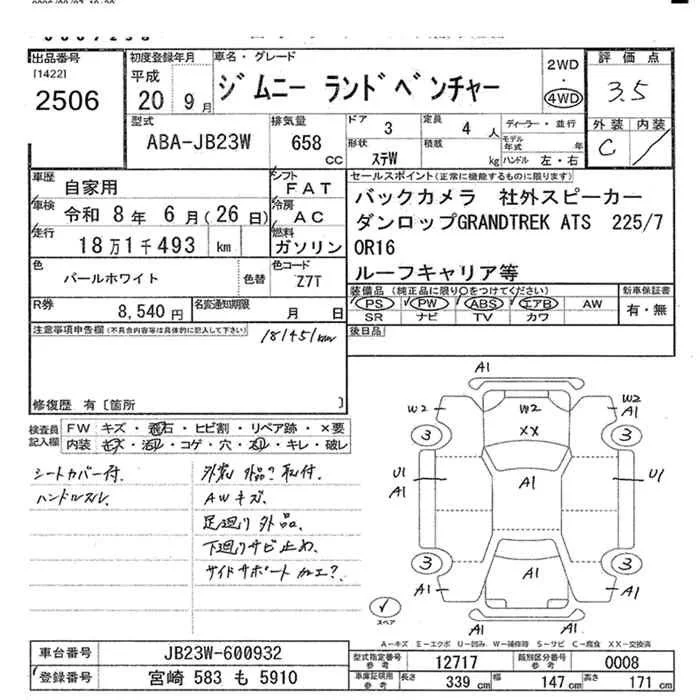 出品番号
[1422]
2506
初度登録年月
平成
20 9月
車名・グレード
ジムニー ランドベンチャー
2WD
・
4WD
評価点
3.5
外装 内装
C
型式
ABA-JB23W
排気量
658
CC
ドア 3
定員 4 人
ディーラー・並行
形状 ステW
積載 kg
モデル年式 年
ハンドル 左・右
車歴 自家用
シフト FAT
車検 令和 8年 6月(26日)
冷房 AC
走行 18万1千493 km
燃料 ガソリン
色 パールホワイト
色替
色コード Z7T
R券 8,540円
名変通知期限 月 日
セールスポイント(正常に機能するものに限ります)
バックカメラ 社外スピーカー
ダンロップGRANDTREK ATS 225/7
0R16
ルーフキャリア等
装備品 (純正品に限り○をつけてください)
新車保証書
PS PW ABS エアB AW
SR ナビ TV カワ
有・無
後日品
注意事項申告欄(不具合内容等は具体的に記入して下さい)
181451km
修復歴 有 [箇所 ]
検査員記入欄
FW キズ・飛石・ヒビ割・リペア跡・×要
内装 キズ・汚レ・コゲ・穴・スレ・キレ・破レ
シートカバー付.
ハンドルスレ.
外装 外品?取付.
AWキズ.
足廻り外品.
下廻りサビ止め.
サイドサポート加工?.
A1
W2
W2
A1
W2
XX
3
3
U1
A1
A1
U1
3
3
A1
A1
A1
スペア
A-キズ E-エクボ U-凹み W-補修跡 S-サビ C-腐食 XX-交換済
車台番号 JB23W-600932
登録番号 宮崎 583 も 5910
型式指定番号 参考 12717
類別区分番号 参考 0008
車庫証明用 参考
長さ 339 cm
幅 147 cm
高さ 171 cm